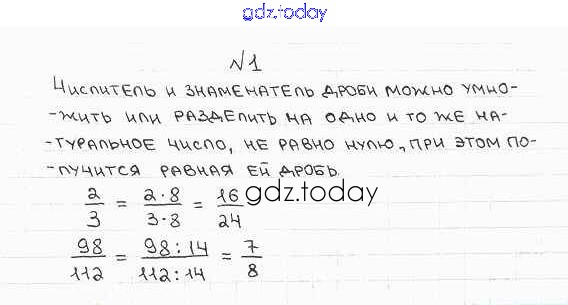 gdz.today
№1
Числитель и знаменатель дроби можно умно-
-жить или разделить на одно и то же на-
-туральное число, не равно нулю, при этом по-
-лучится равная ей дробь.
2/3 = 2·8/3·8 = 16/24
gdz.today
98/112 = 98:14/112:14 = 7/8